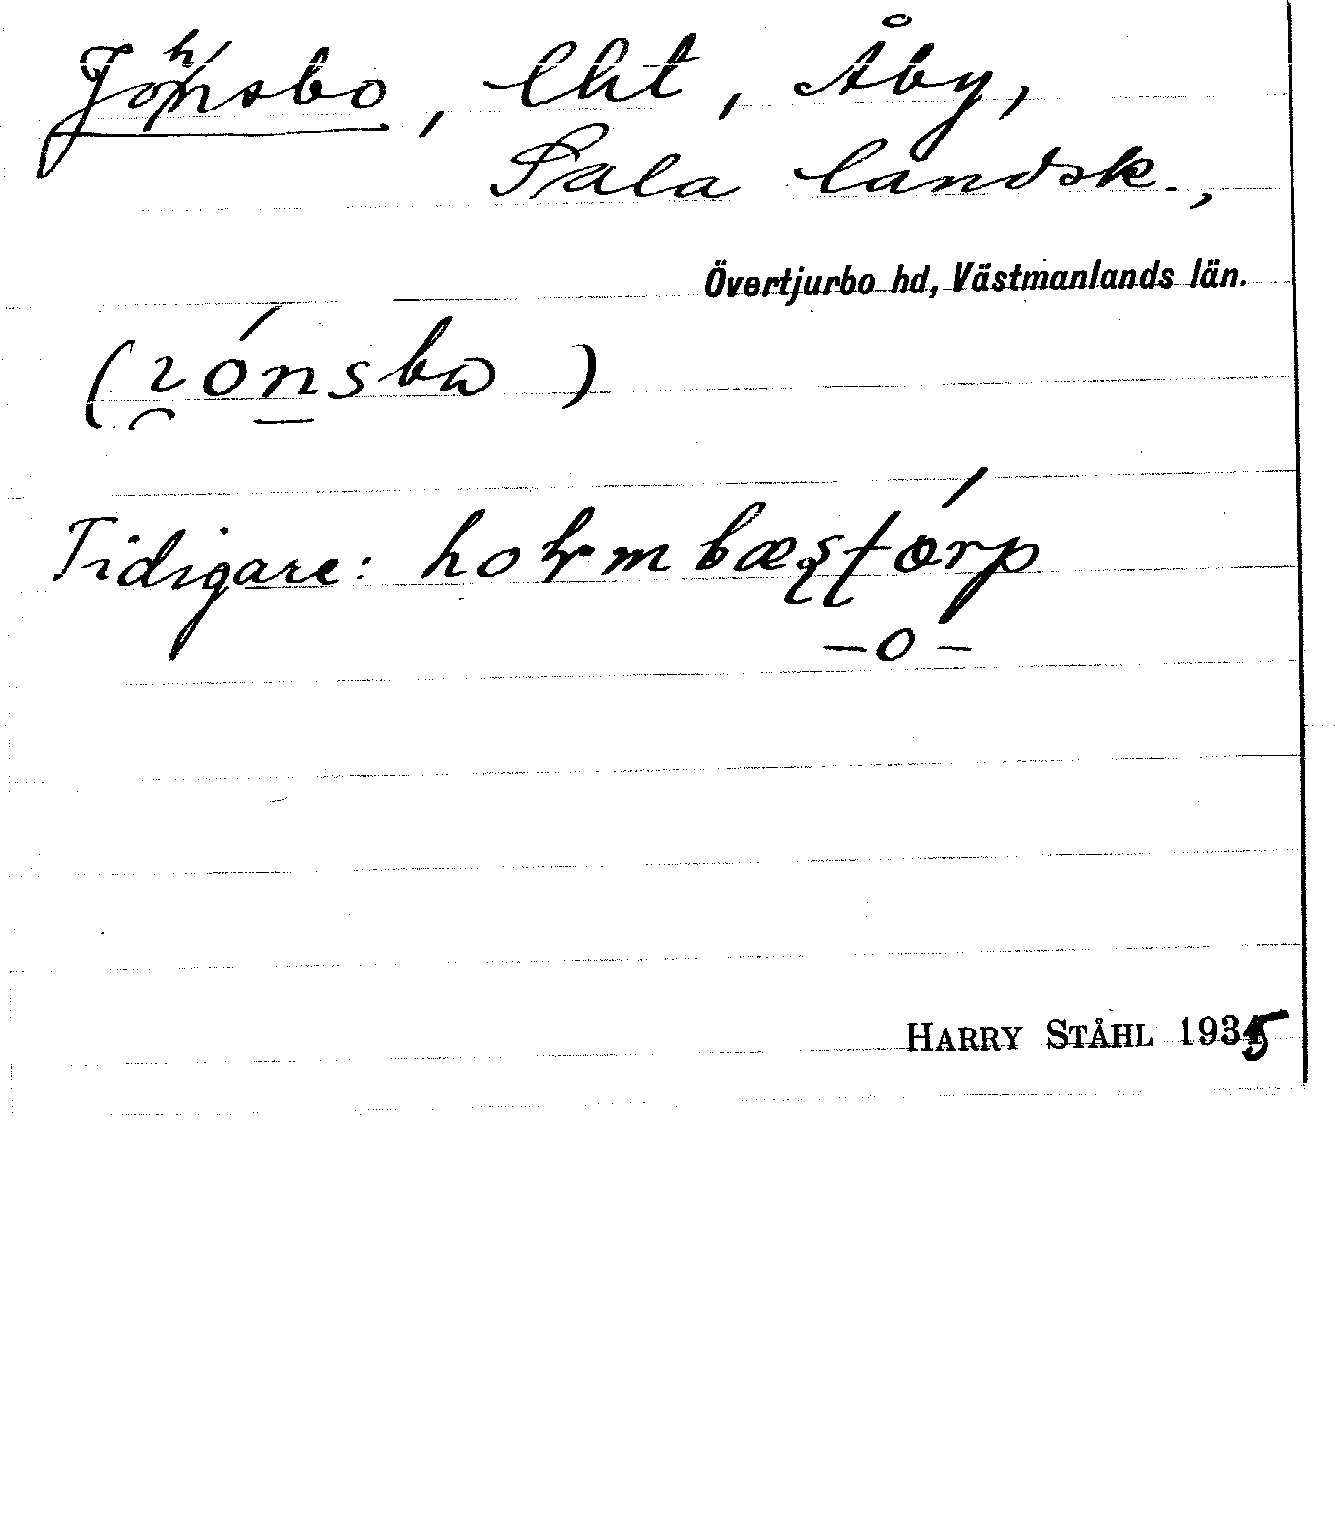 Jönsbo, lht, Åby,
Sala landsk.,
Övertjurbo hd, Västmanlands län.
Tidigare:
–o–
HARRY STÅHL 1935